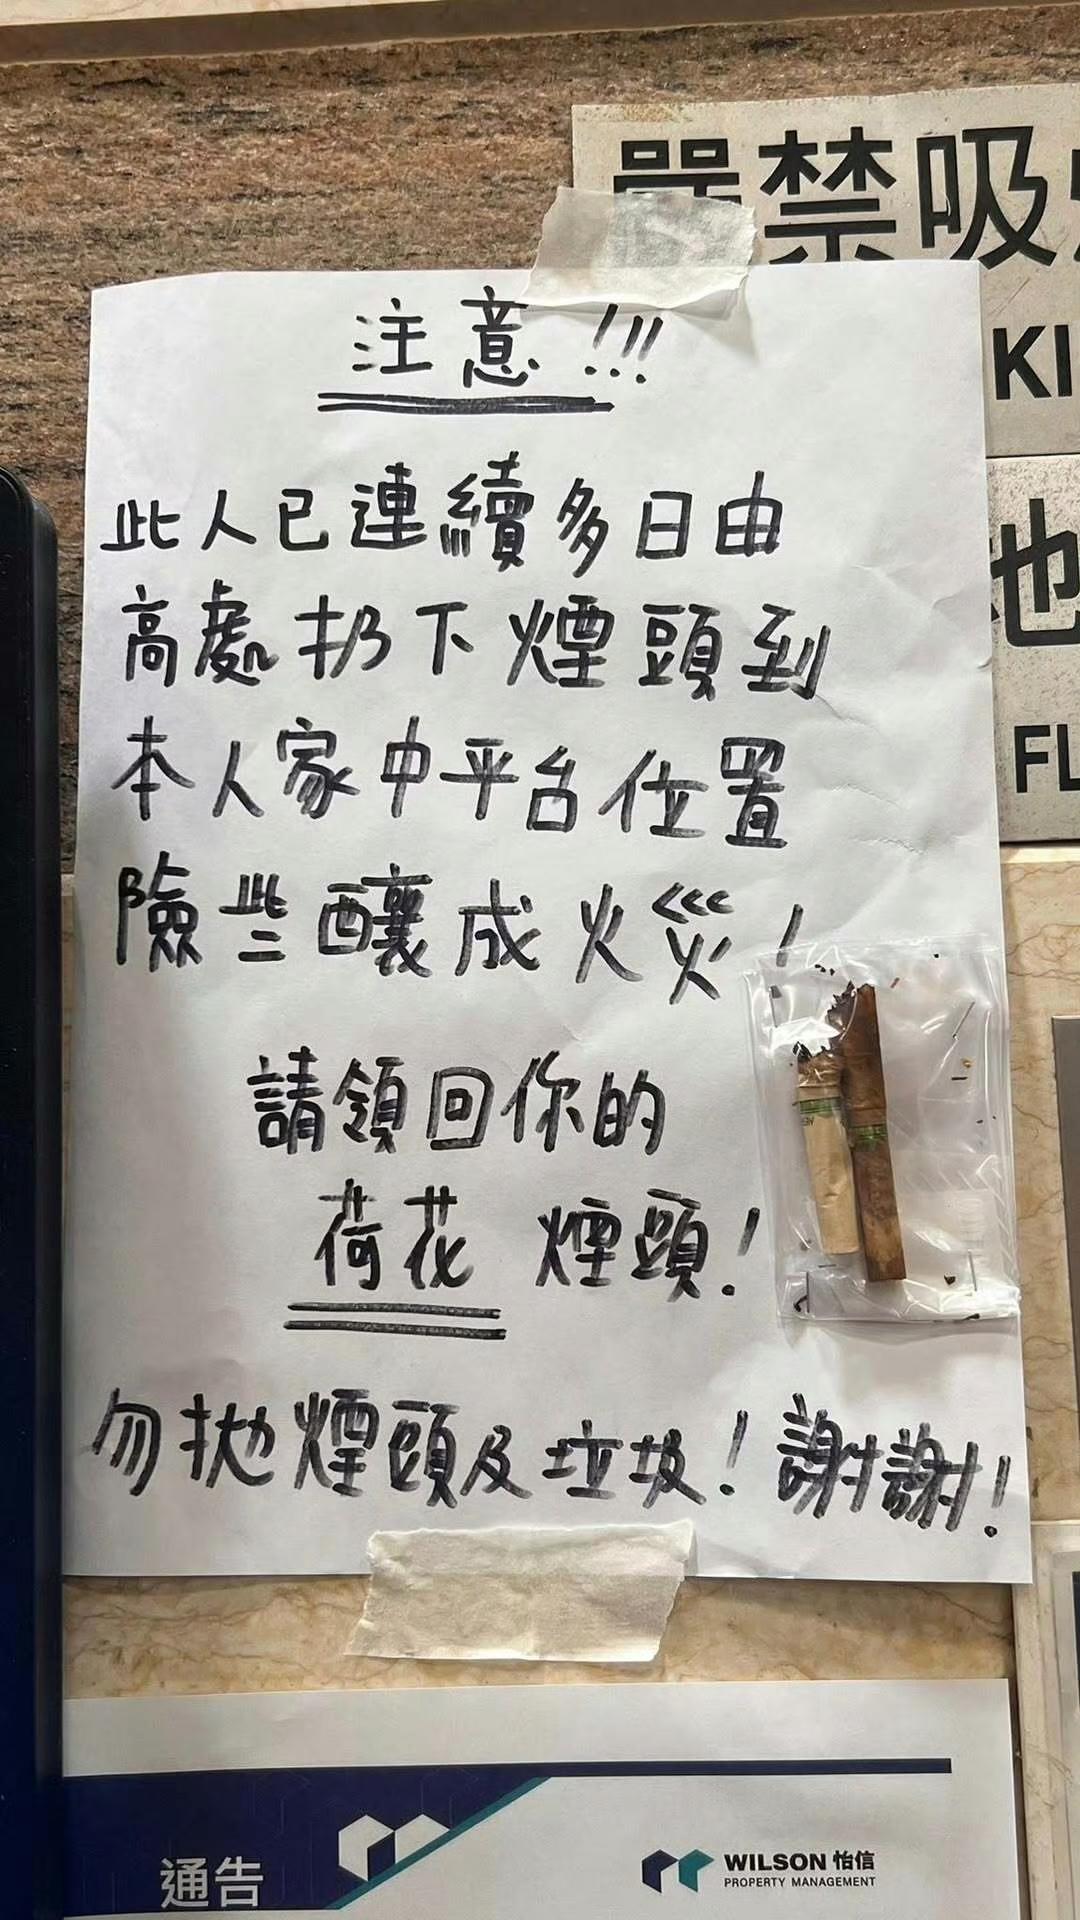 嚴禁吸
KI
注意!!!
此人已連續多日由
高處扔下煙頭到
本人家中平台位置
險些釀成火災!
請領回你的
荷花 煙頭!
勿拋煙頭及垃圾!謝謝!
地
FL
通告
WILSON 怡信
PROPERTY MANAGEMENT